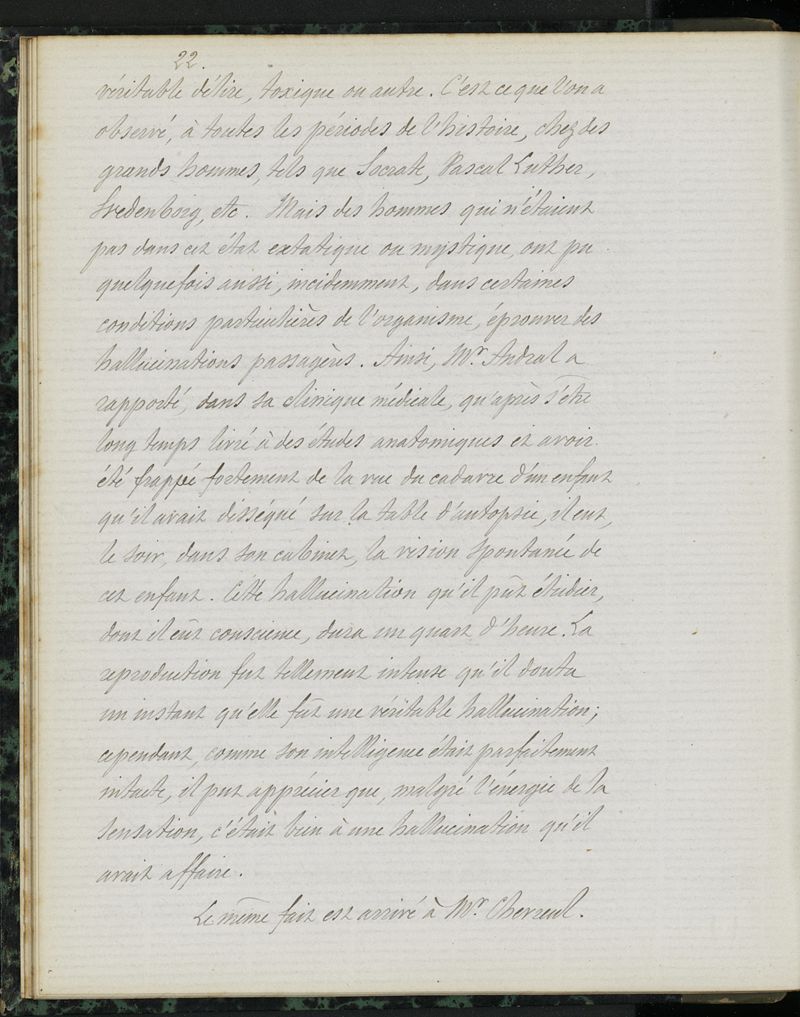 22.
véritable délire, toxique ou autre. C'est ce que l'on a
observé, à toutes les périodes de l'histoire, chez des
grands hommes, tels que Socrate, Pascal Luther,
Svedenborg, etc. Mais des hommes qui n'étaient
pas dans cet état extatique ou mystique, ont pu
quelquefois aussi, incidemment, dans certaines
conditions particulières de l'organisme, éprouver des
hallucinations passagères. Ainsi, Mr. Andral a
rapporté, dans sa clinique médicale, qu'après s'être
long temps livré à des études anatomiques et avoir
été frappé fortement de la vue du cadavre d'un enfant
qu'il avait disséqué sur la table d'autopsie, il eut,
le soir, dans son cabinet, la vision spontanée de
cet enfant. Cette hallucination qu'il pût étudier,
dont il eût conscience, dura un quart d'heure. La
reproduction fut tellement intense qu'il douta
un instant qu'elle fût une véritable hallucination;
cependant, comme son intelligence était parfaitement
intacte, il put apprécier que, malgré l'énergie de la
sensation, c'était bien à une hallucination qu'il
avait affaire.
Le même fait est arrivé à Mr. Chevreul.